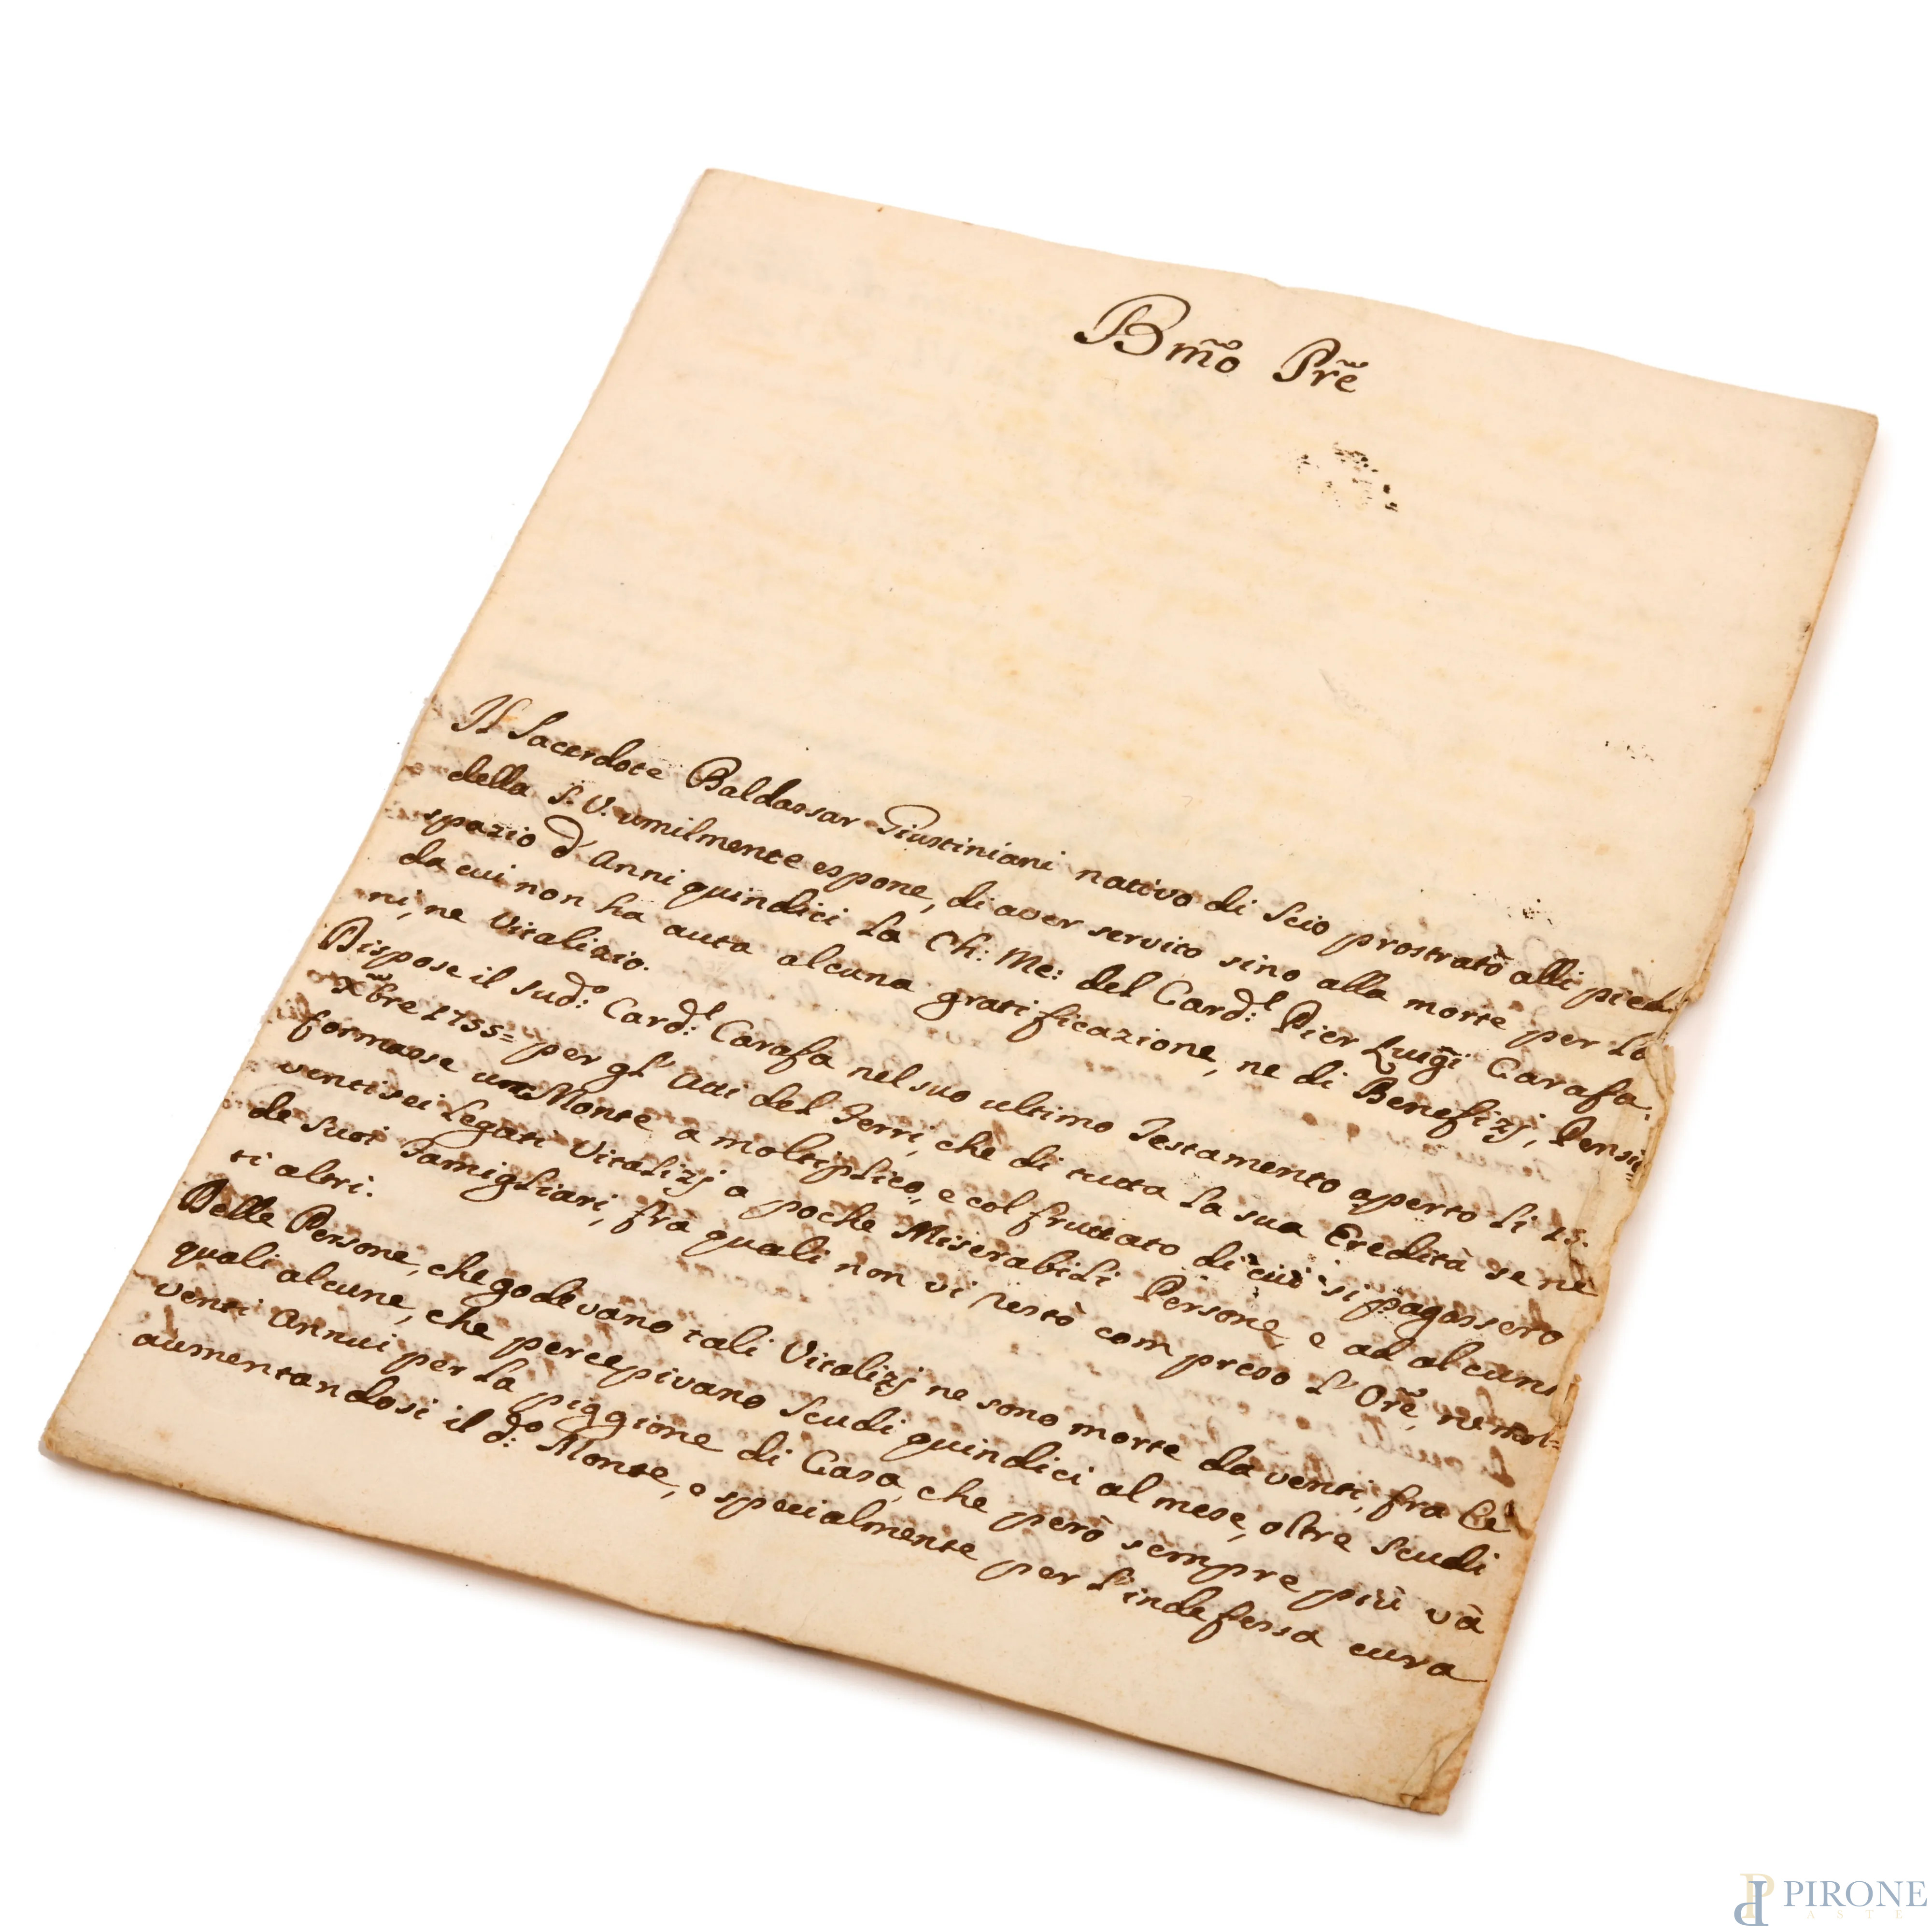 Bm̃o Prẽ
Il Sacerdote Baldassar Giustiniani nativo di Scio prostrato alli piedi
della S. V. umilmente espone, di aver servito sino alla morte per lo
spazio d'Anni quindici la Ch: Me: del Card:l Pier Luigi Carafa,
da cui non ha auta alcuna gratificazione, ne di Benefizj, Pensio=
ni, ne Vitalizio.
Dispose il sud:o Card:l Carafa nel suo ultimo Testamento aperto li 15.
Xbre 1755= per gl'Atti del Ferri, che di tutta la sua Eredità se ne
formasse un Monte a moltiplico, e col fruttato di cui si pagassero
ventisei Legati Vitalizj a poche Miserabili Persone, e ad alcuni
de suoi Famigliari, fra quali non vi restò compreso l'Orẽ, ne mol=
ti altri.
Delle Persone, che godevano tali Vitalizj ne sono morte da venti, fra le
quali alcune, che percepivano Scudi quindici al mese, oltre Scudi
venti Annui per la piggione di Casa, che però sempre più và
aumentandosi il d:o Monte, e specialmente per l'indefessa cura
PIRONE
ASTE